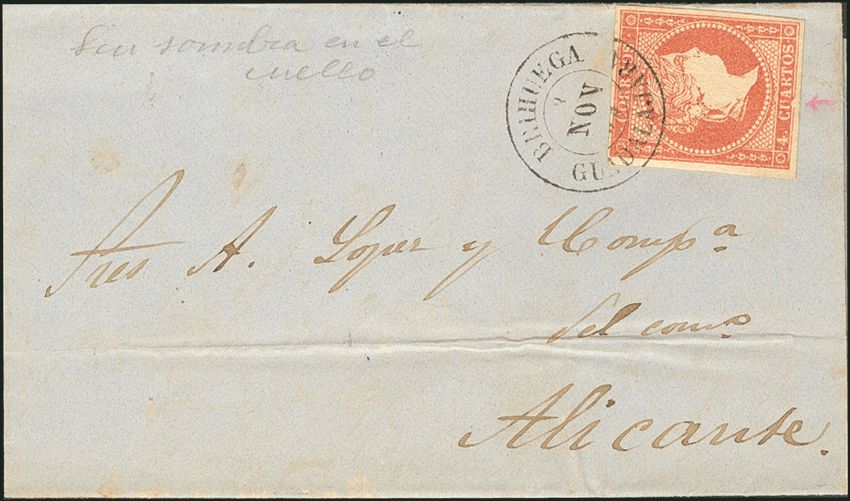 Sin sombra en el
cuello
BRIHUEGA
NOV
GUADALAJARA
CORREOS
4 CUARTOS
Sres A. Lopez y Compª
del comº
Alicante.